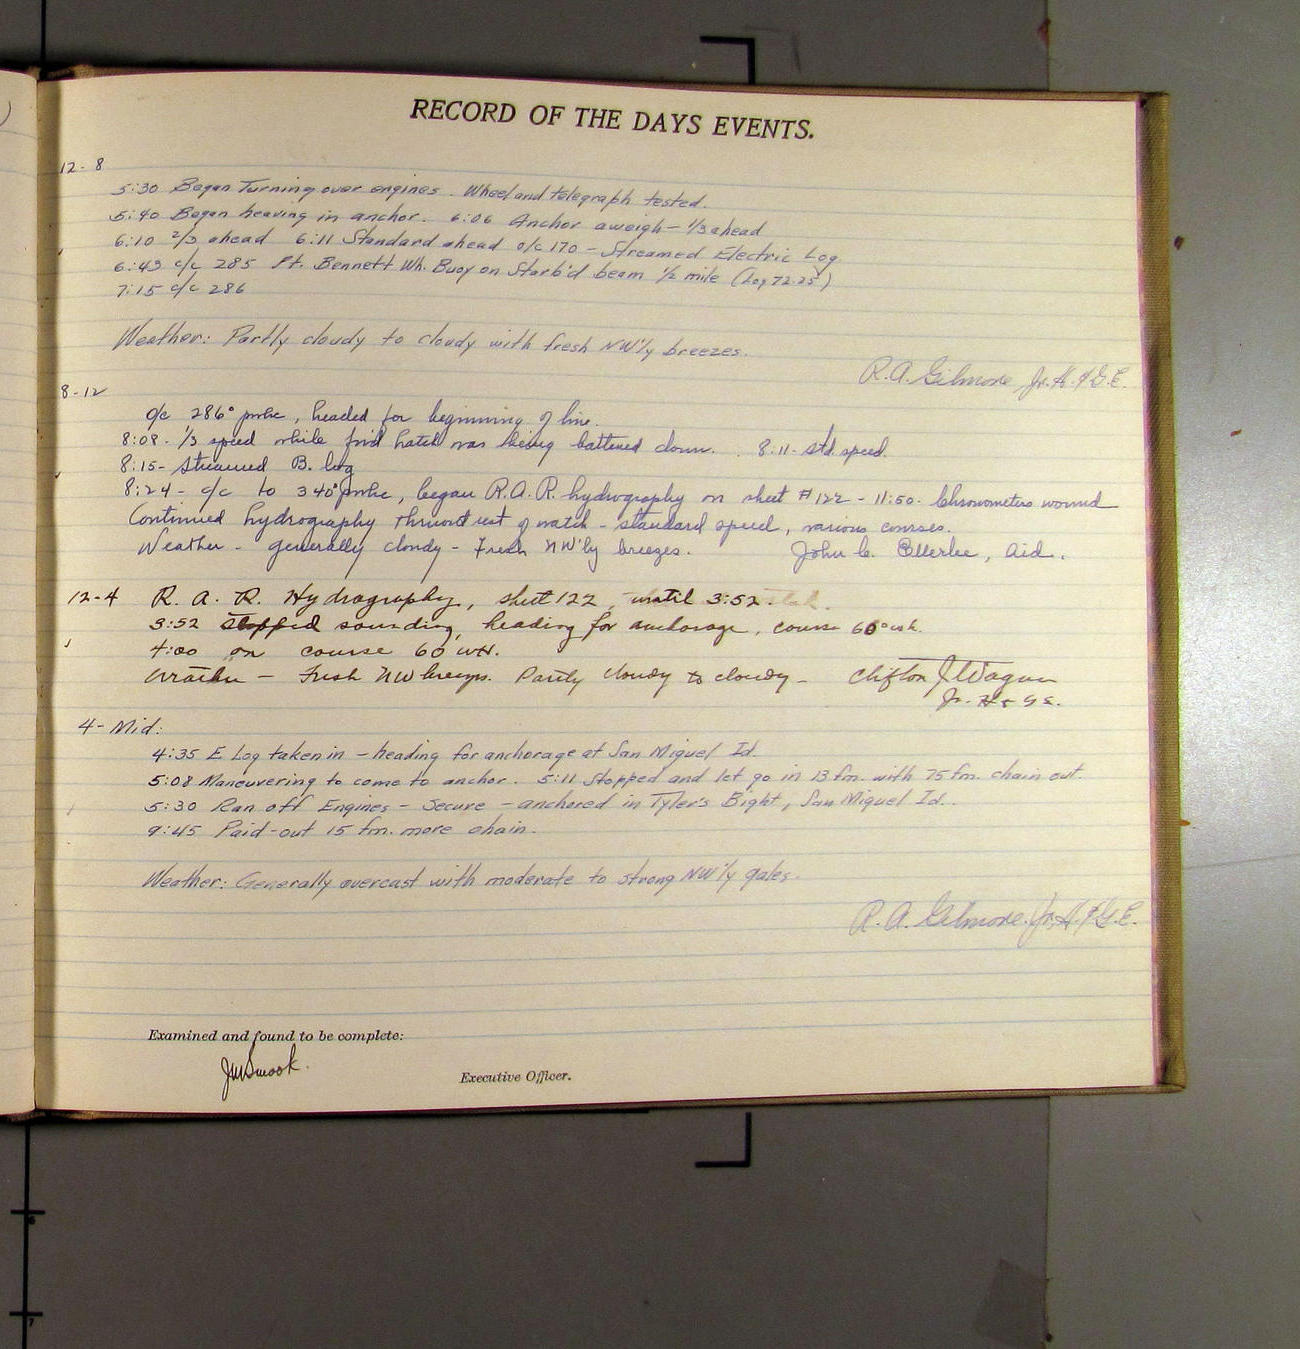 RECORD OF THE DAYS EVENTS.
12-8
5:30 Began Turning over engines. Wheel and telegraph tested.
5:40 Began heaving in anchor. 6:06 Anchor aweigh - 1/3 ahead
6:10 2/3 ahead 6:11 Standard ahead o/c 170 - Streamed Electric Log
6:43 c/c 285 Pt. Bennett Wh. Buoy on Starb'd beam 1/2 mile (Log 72.25)
7:15 c/c 286
Weather: Partly cloudy to cloudy with fresh NW'ly breezes.
R.A. Gilmore, Jr. H. & G.E.
8-12
o/c 286° pmhc, headed for beginning of line.
8:08 - 1/3 speed while fwd hatch was being battened down. 8:11 - std. speed.
8:15 - Streamed B. log
8:24 - c/c to 340° pmhc, began R.A.R. hydrography on sheet #122 - 11:50. Chronometers wound
Continued hydrography thruout rest of watch - standard speed, various courses.
Weather - generally cloudy - Fresh NW'ly breezes. John C. Ellerbe, Aid.
12-4 R. A. R. Hydrography, sheet 122, until 3:52.
3:52 stopped sounding, heading for anchorage, course 60°
4:00 on course 60
Weather - Fresh NW breezes. Partly cloudy to cloudy - Clifton J. Wagner
Jr. H & G E.
4-Mid:
4:35 E Log taken in - heading for anchorage at San Miguel Id
5:08 Maneuvering to come to anchor. 5:11 Stopped and let go in 13 fm. with 75 fm. chain out.
5:30 Ran off Engines - Secure - anchored in Tyler's Bight, San Miguel Id.
9:45 Paid-out 15 fm. more chain.
Weather: Generally overcast with moderate to strong NW'ly gales.
R. A. Gilmore. Jr. H. & G.E.
Examined and found to be complete:
JM Smook.
Executive Officer.
6
7